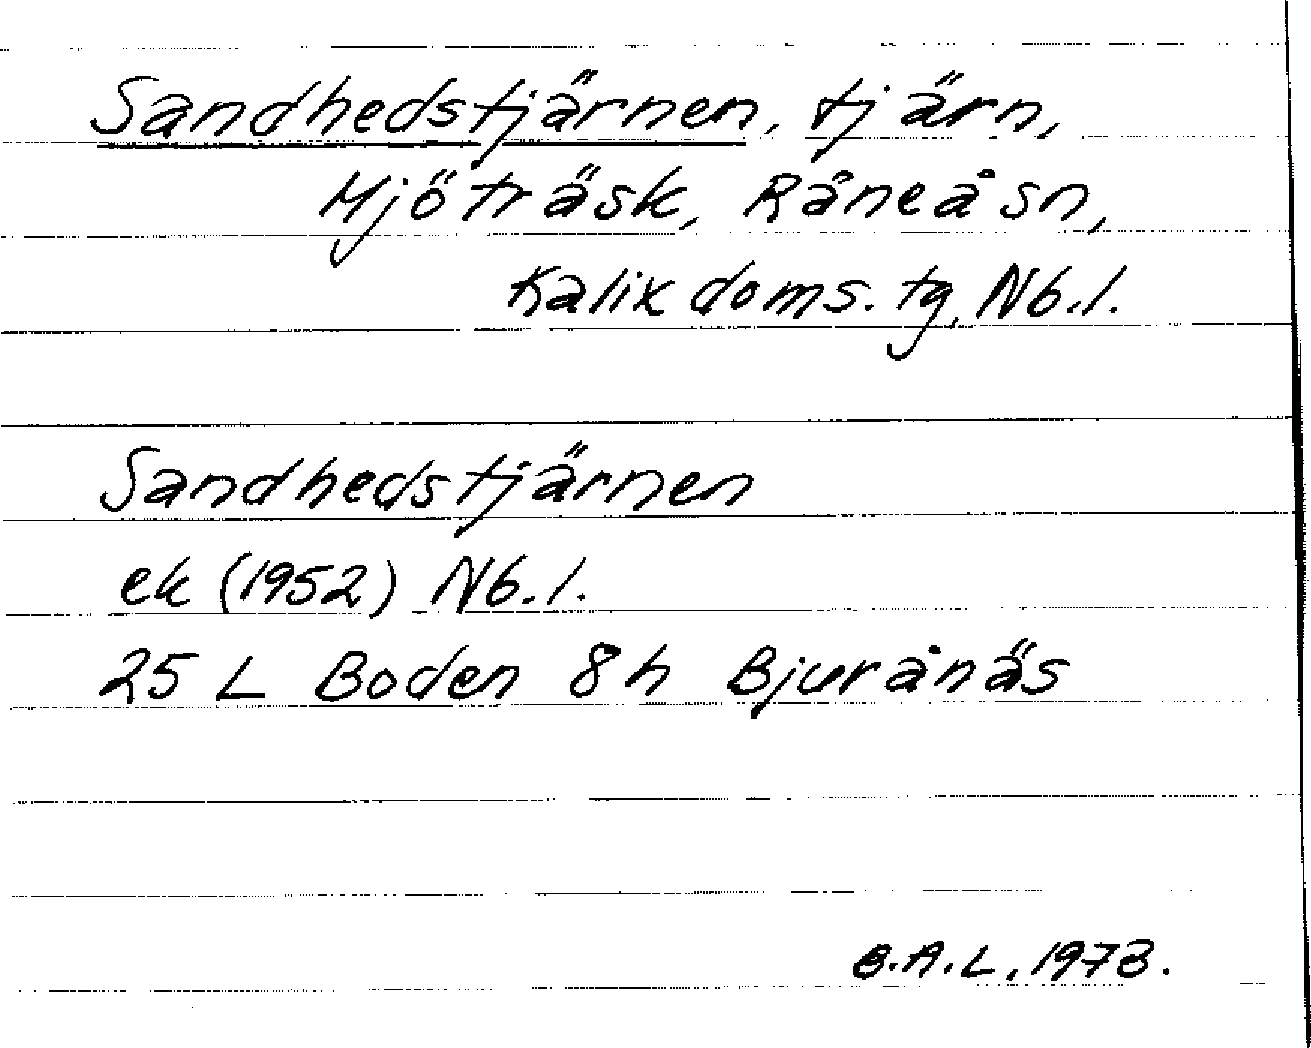 Sandhedstjärnen, tjärn,
Mjöträsk, Råneå sn,
Kalix doms. tg, Nb.l.
Sandhedstjärnen
ek (1952) Nb.l.
25 L Boden 8h Bjurånäs
B.A.L. 1973.